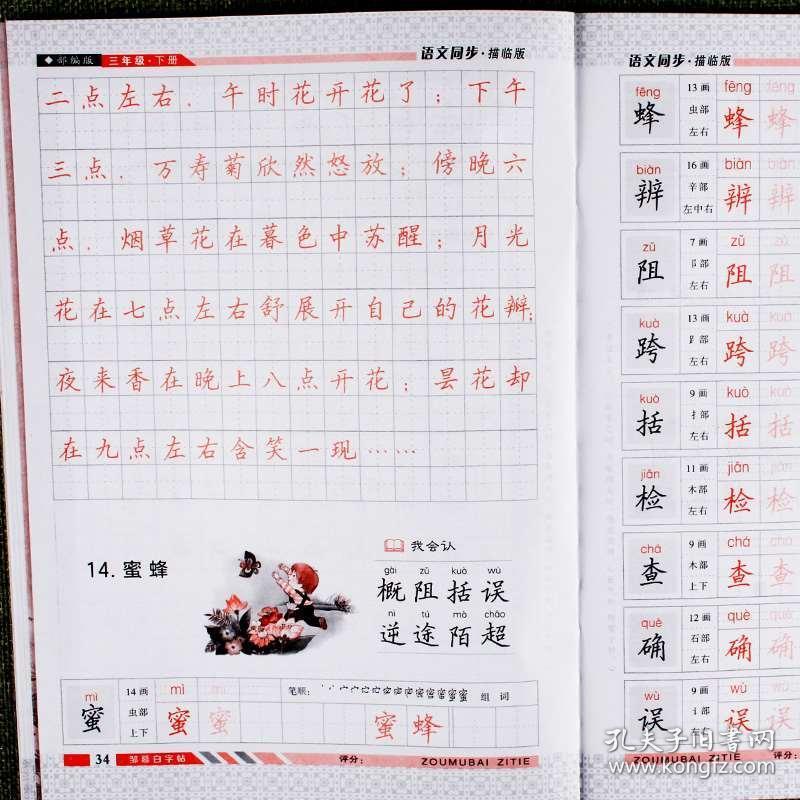 ◆ 部编版 三年级·下册 语文同步·描临版
二点左右．午时花开花了；下午
三点．万寿菊欣然怒放；傍晚六
点．烟草花在暮色中苏醒；月光
花在七点左右舒展开自己的花瓣；
夜来香在晚上八点开花；昙花却
在九点左右含笑一现……
14.蜜蜂
我会认
gài zǔ kuò wù
概阻括误
nì tú mò chāo
逆途陌超
mì 14画 mì 笔顺： 组词
蜜 虫部 蜜 蜜 蜜蜂
上下
34 邹慕白字帖 评分： ZOUMUBAI ZITIE
语文同步·描临版
fēng 13画 fēng fēng
蜂 虫部 蜂 蜂
左右
biàn 16画 biàn biàn
辨 辛部 辨 辨
左中右
zǔ 7画 zǔ zǔ
阻 阝部 阻 阻
左右
kuà 13画 kuà kuà
跨 𧾷部 跨 跨
左右
kuò 9画 kuò kuò
括 扌部 括 括
左右
jiǎn 11画 jiǎn jiǎn
检 木部 检 检
左右
chá 9画 chá chá
查 木部 查 查
上下
què 12画 què què
确 石部 确 确
左右
wù 9画 wù wù
误 讠部 误 误
左右
ZOUMUBAI ZITIE
孔夫子旧书网
www.kongfz.com